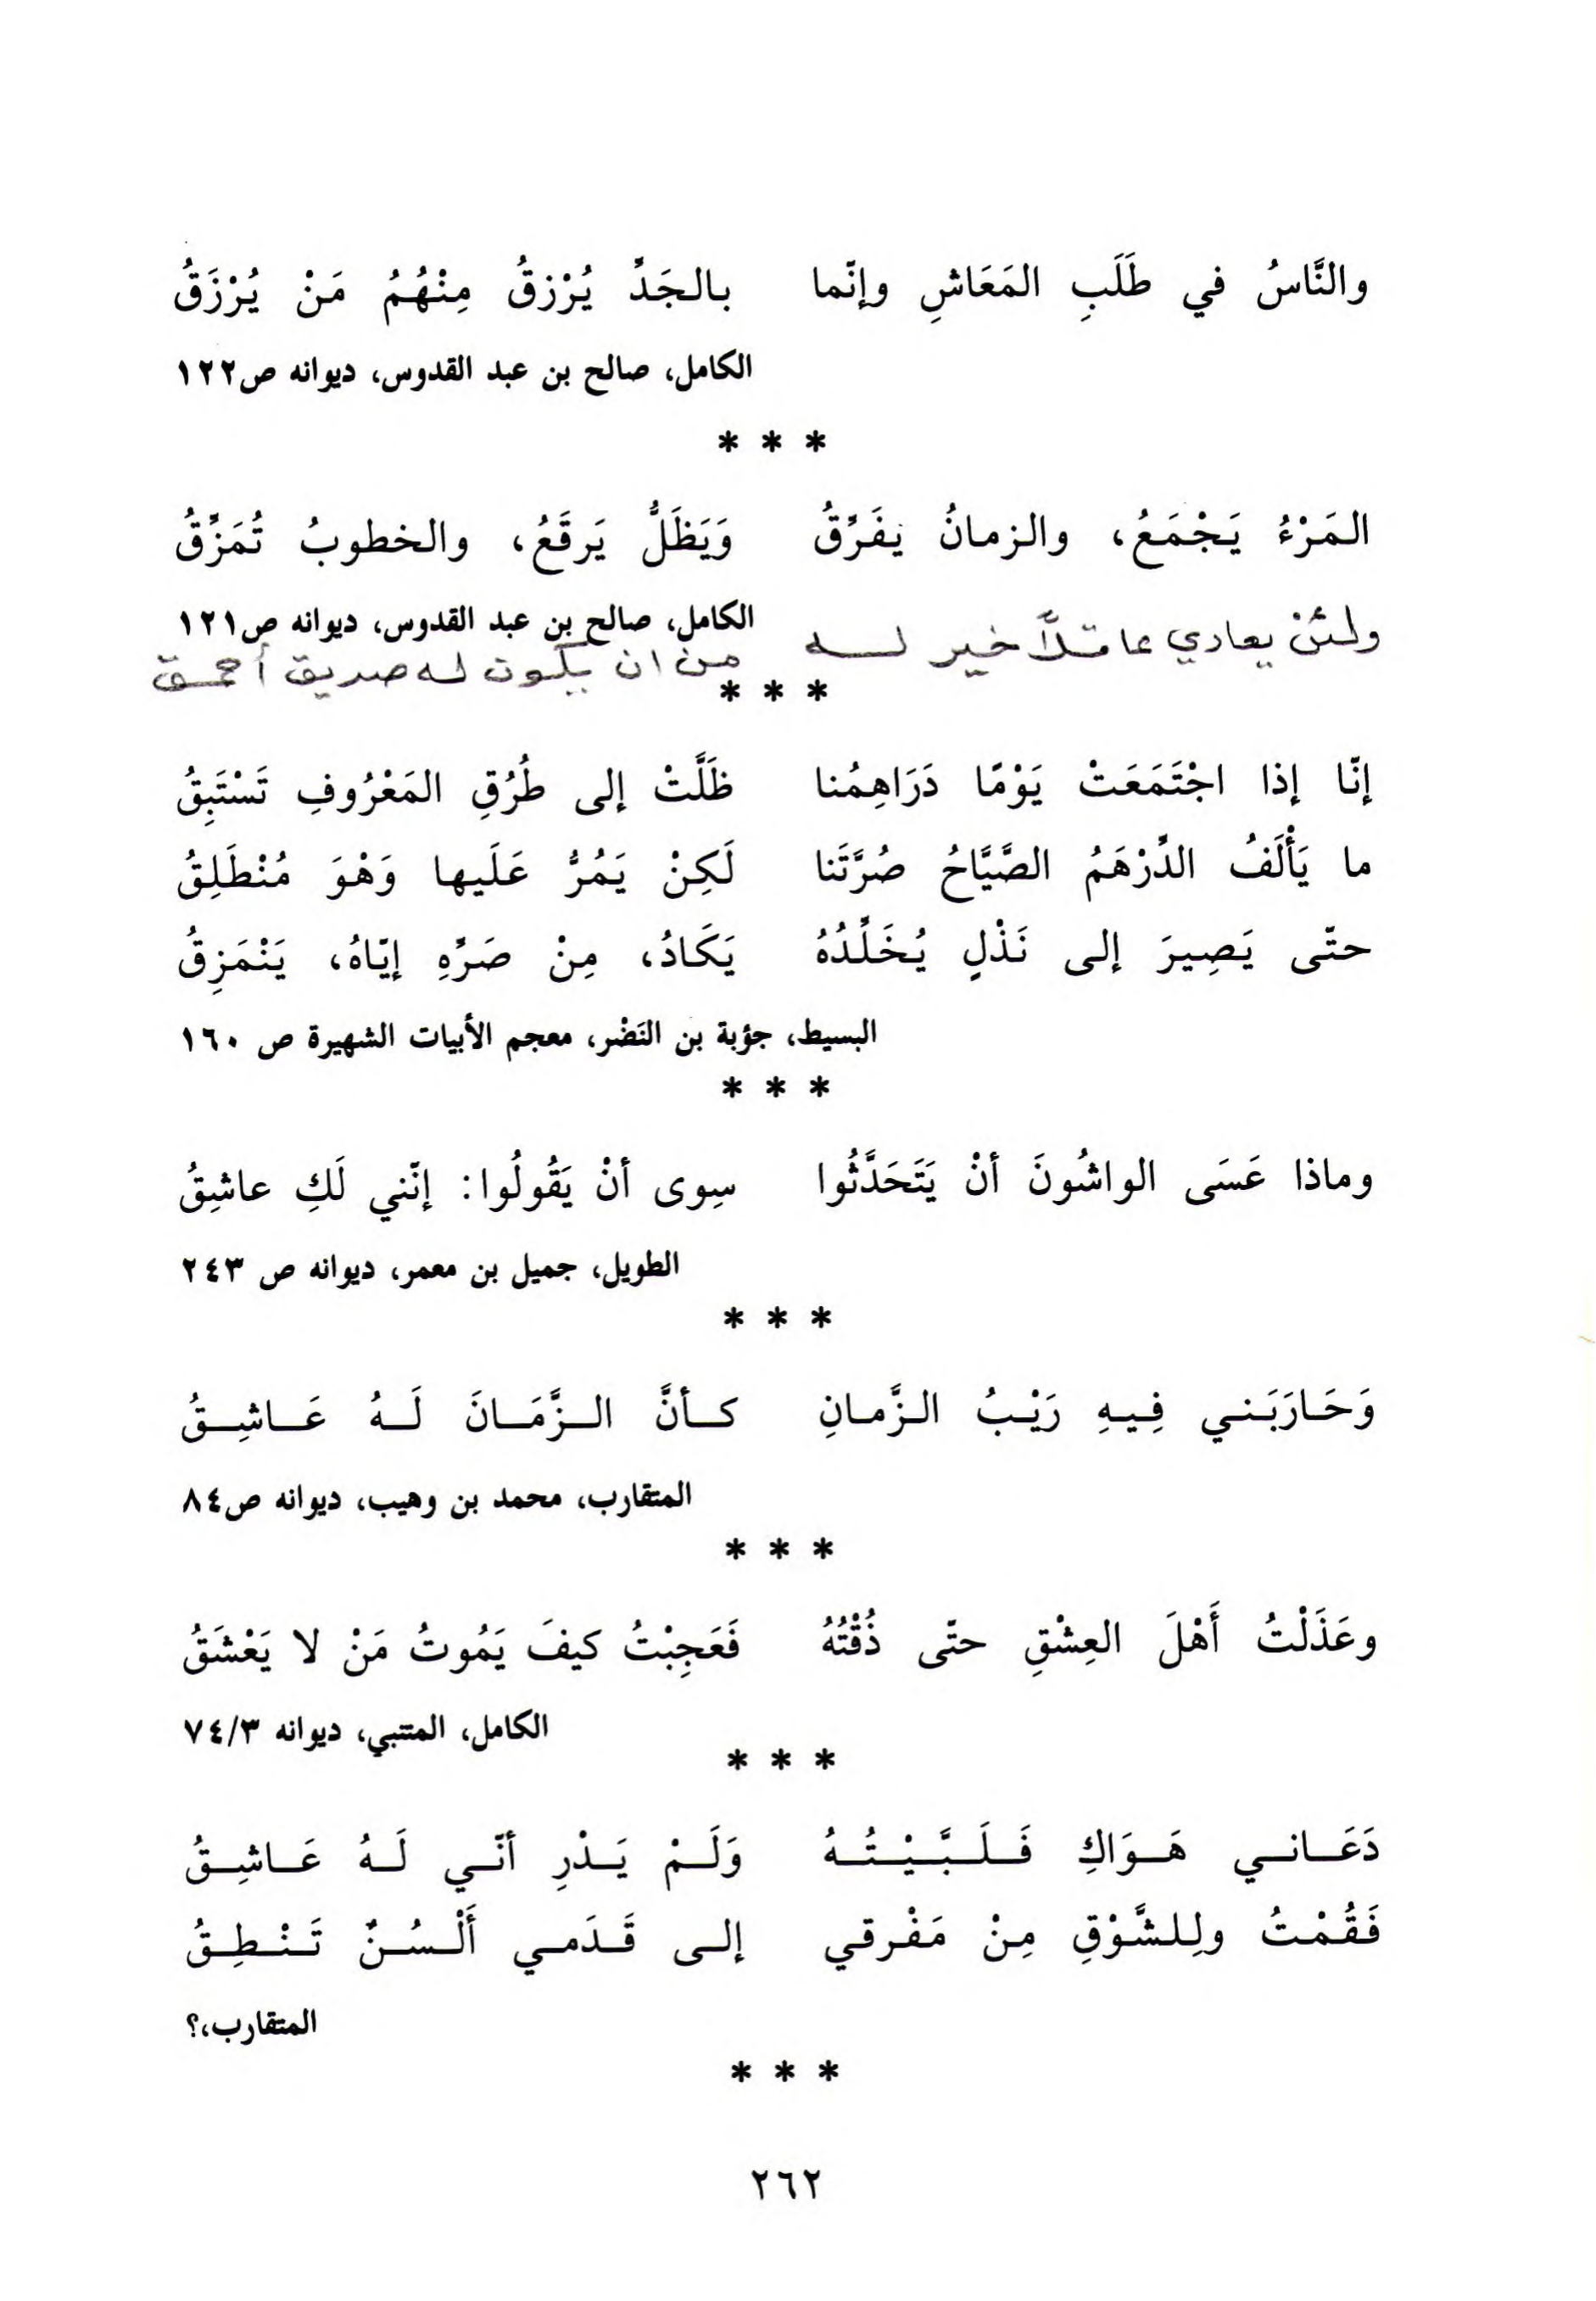 والنَّاسُ في طَلَبِ المَعَاشِ وإنّما بالجَدِّ يُرْزقُ مِنْهُمُ مَنْ يُرْزَقُ
الكامل، صالح بن عبد القدوس، ديوانه ص١٢٢
* * *
المَرْءُ يَجْمَعُ، والزمانُ يُفَرِّقُ وَيَظَلُّ يَرقَعُ، والخطوبُ تُمَزِّقُ
الكامل، صالح بن عبد القدوس، ديوانه ص١٢١
ولئن يعادي عاقلاً خير له من ان يكون له صديق أحمق
* * *
إنّا إذا اجْتَمَعَتْ يَوْمًا دَرَاهِمُنا ظَلَّتْ إلى طُرُقِ المَعْرُوفِ تَسْتَبِقُ
ما يَأْلَفُ الدِّرْهَمُ الصَّيَّاحُ صُرَّتَنا لَكِنْ يَمُرُّ عَلَيها وَهْوَ مُنْطَلِقُ
حتّى يَصِيرَ إلى نَذْلٍ يُخَلِّدُهُ يَكَادُ، مِنْ صَرِّهِ إيّاهُ، يَنْمَزِقُ
البسيط، جؤبة بن النَضْر، معجم الأبيات الشهيرة ص ١٦٠
* * *
وماذا عَسَى الواشُونَ أنْ يَتَحَدَّثُوا سِوى أنْ يَقُولُوا: إنّني لَكِ عاشِقُ
الطويل، جميل بن معمر، ديوانه ص ٢٤٣
* * *
وَحَارَبَني فِيهِ رَيْبُ الزَّمانِ كأنَّ الزَّمَانَ لَهُ عَاشِقُ
المتقارب، محمد بن وهيب، ديوانه ص٨٤
* * *
وعَذَلْتُ أَهْلَ العِشْقِ حتّى ذُقْتُهُ فَعَجِبْتُ كيفَ يَمُوتُ مَنْ لا يَعْشَقُ
الكامل، المتنبي، ديوانه ٧٤/٣
* * *
دَعَاني هَوَاكِ فَلَبَّيْتُهُ وَلَمْ يَدْرِ أنّي لَهُ عَاشِقُ
فَقُمْتُ ولِلشَّوْقِ مِنْ مَفْرقي إلى قَدَمي أَلْسُنٌ تَنْطِقُ
المتقارب،؟
* * *
٢٦٢